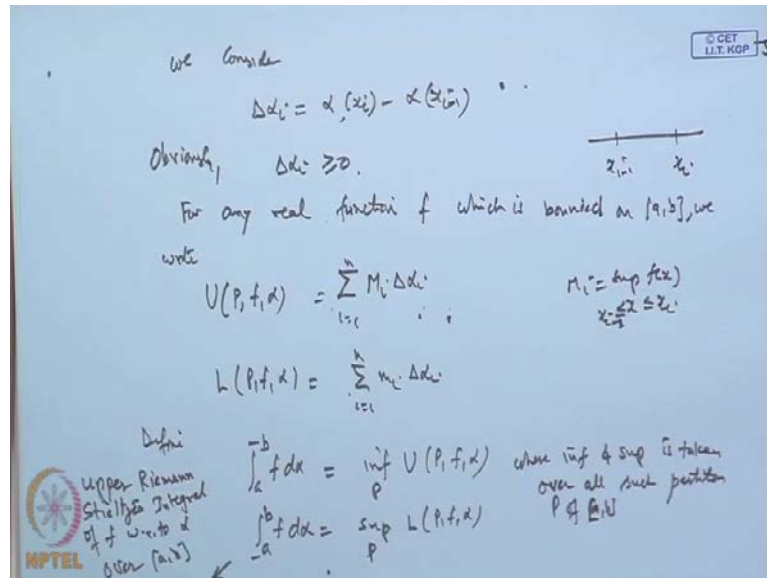 © CET
I.I.T. KGP
we Consider
Δαᵢ = α(xᵢ) − α(xᵢ₋₁)
Obviously, Δαᵢ ≥ 0.
xᵢ₋₁ xᵢ
For any real function f which is bounded on [a,b], we
write
U(P, f, α) = ∑ᵢ₌₁ⁿ Mᵢ Δαᵢ
Mᵢ = sup f(x)
xᵢ₋₁ ≤ x ≤ xᵢ
L(P, f, α) = ∑ᵢ₌₁ⁿ mᵢ Δαᵢ
Define
∫ₐ⁻ᵇ f dα = inf_P U(P, f, α) where inf & sup is taken
over all such partition
P of [a,b]
∫₋ₐᵇ f dα = sup_P L(P, f, α)
upper Riemann
Stieltjes Integral
of f w.r. to α
over [a,b]
NPTEL